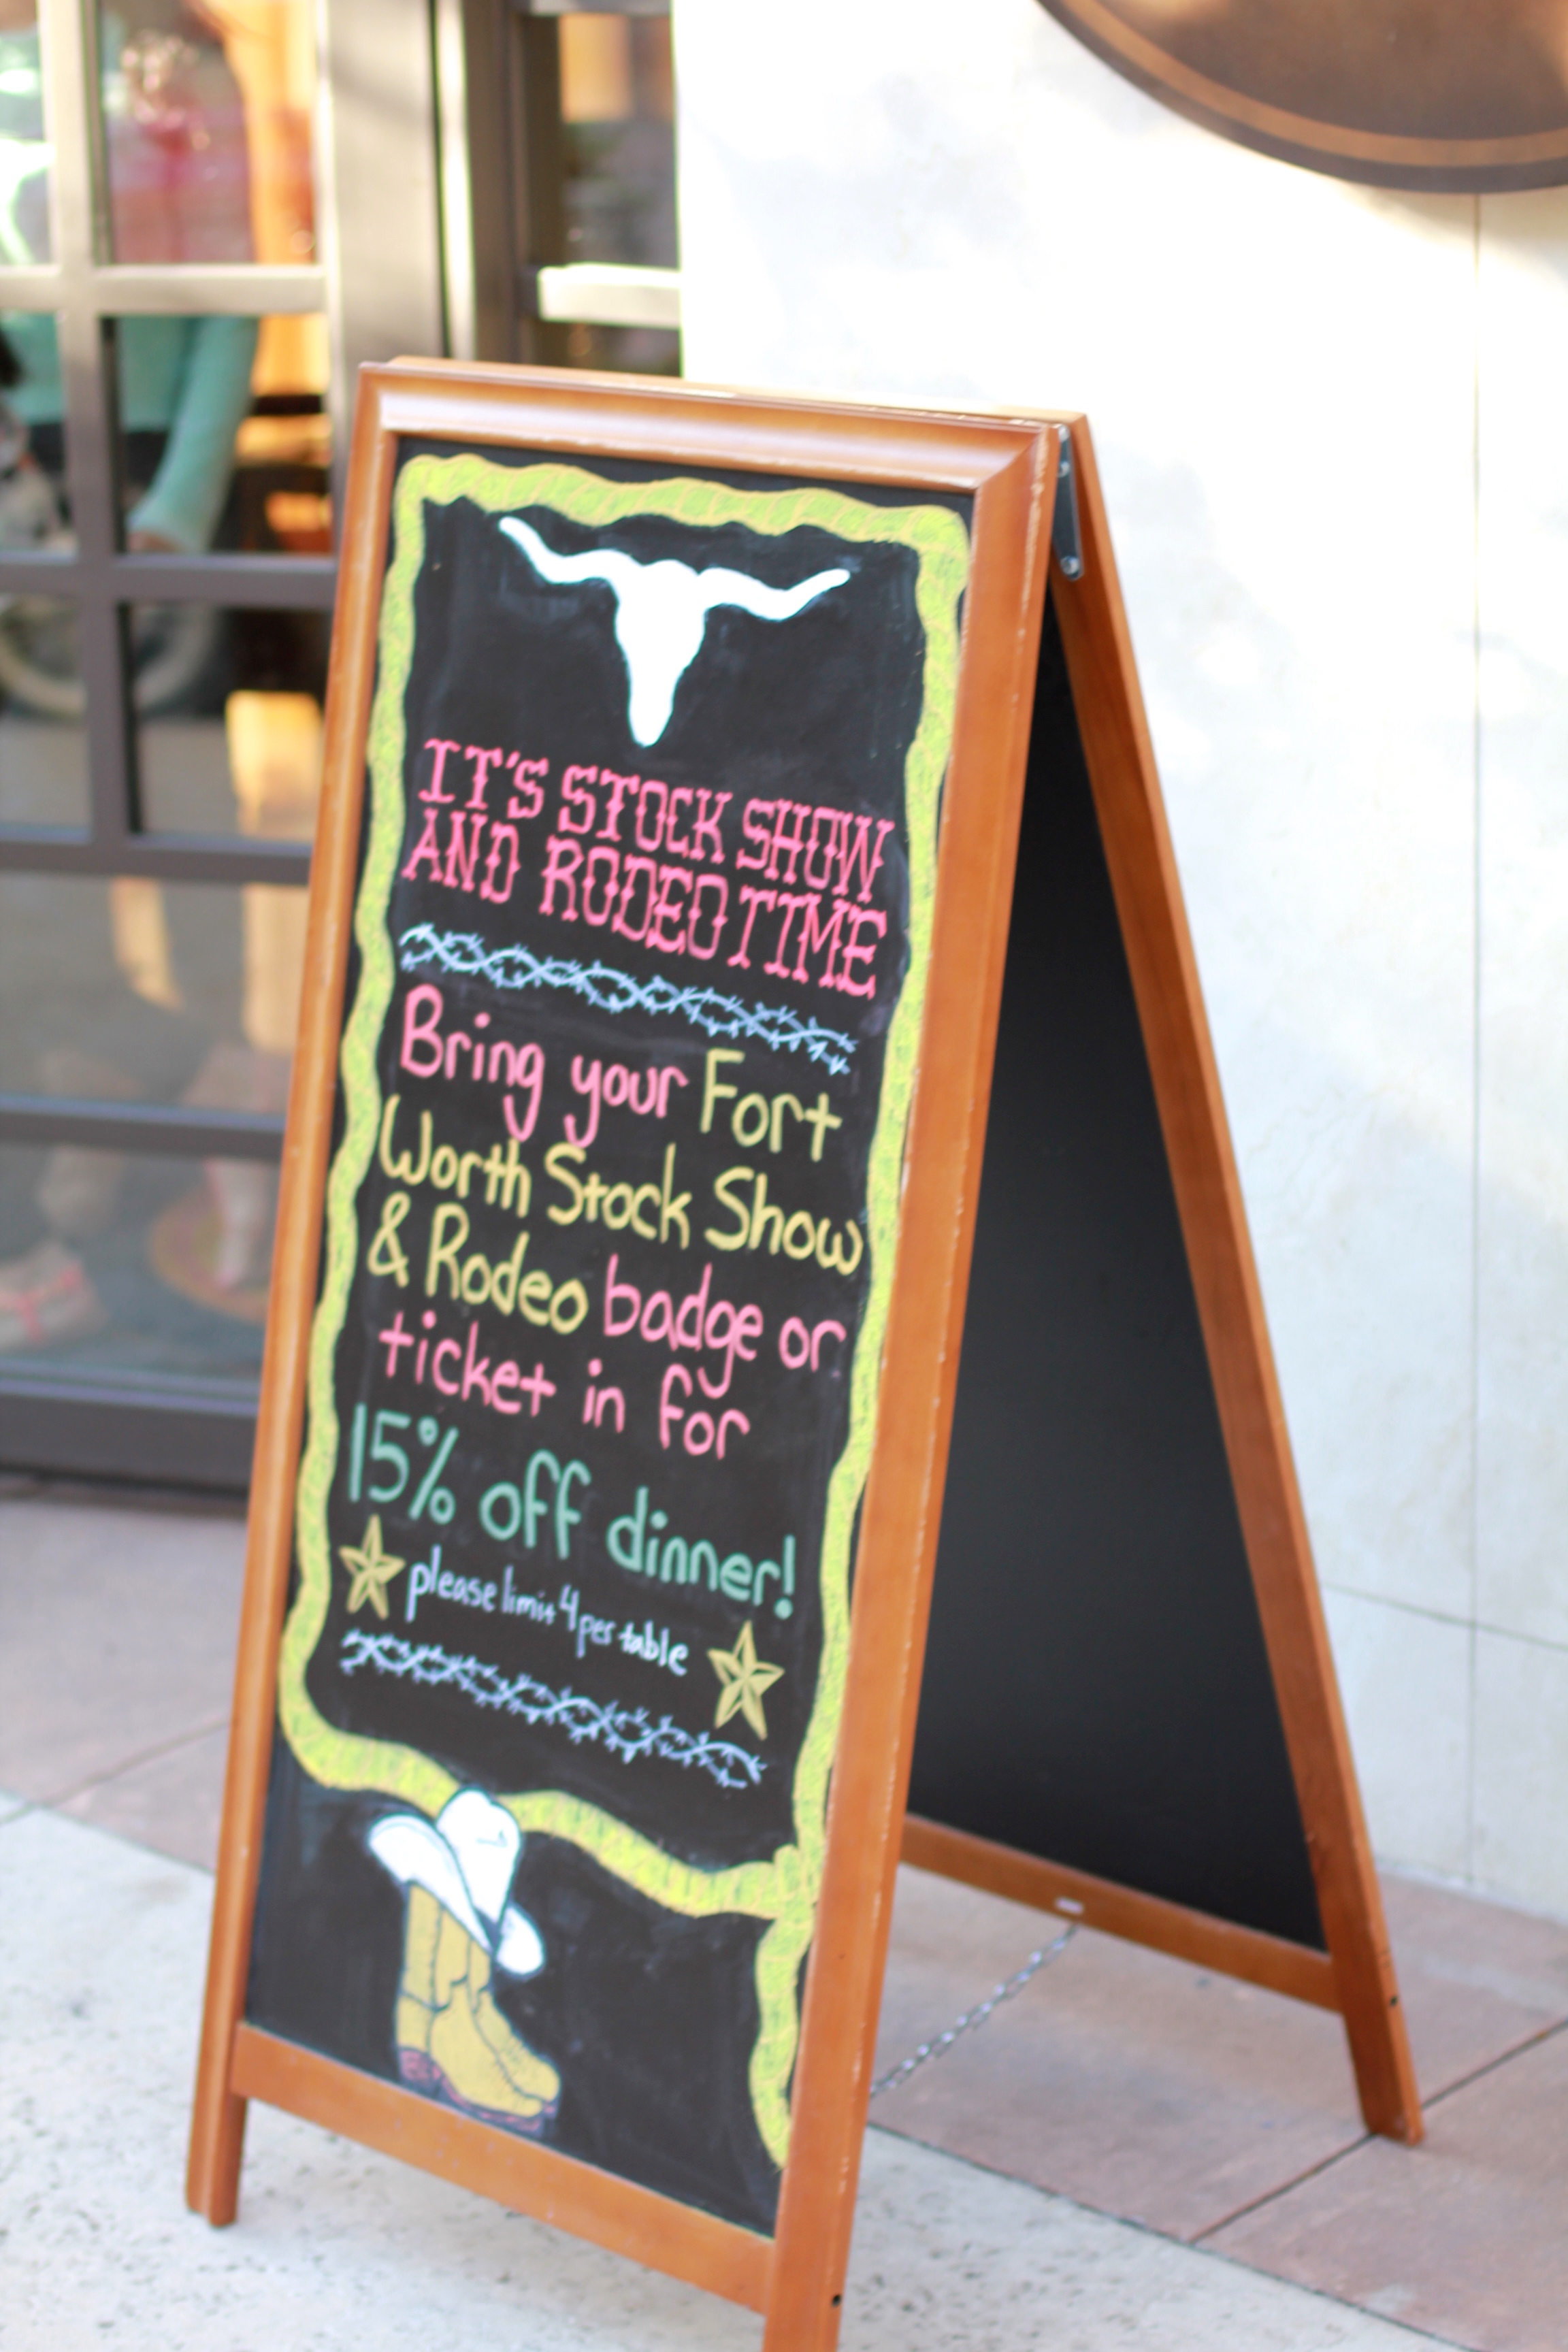 IT'S STOCK SHOW
AND RODEO TIME
Bring your Fort
Worth Stock Show
& Rodeo badge or
ticket in for
15% off dinner!
please limit 4 per table